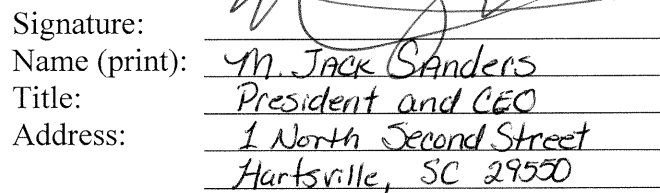 Signature:
Name (print): M. JACK SAnders
Title: President and CEO
Address: 1 North Second Street
Hartsville, SC 29550